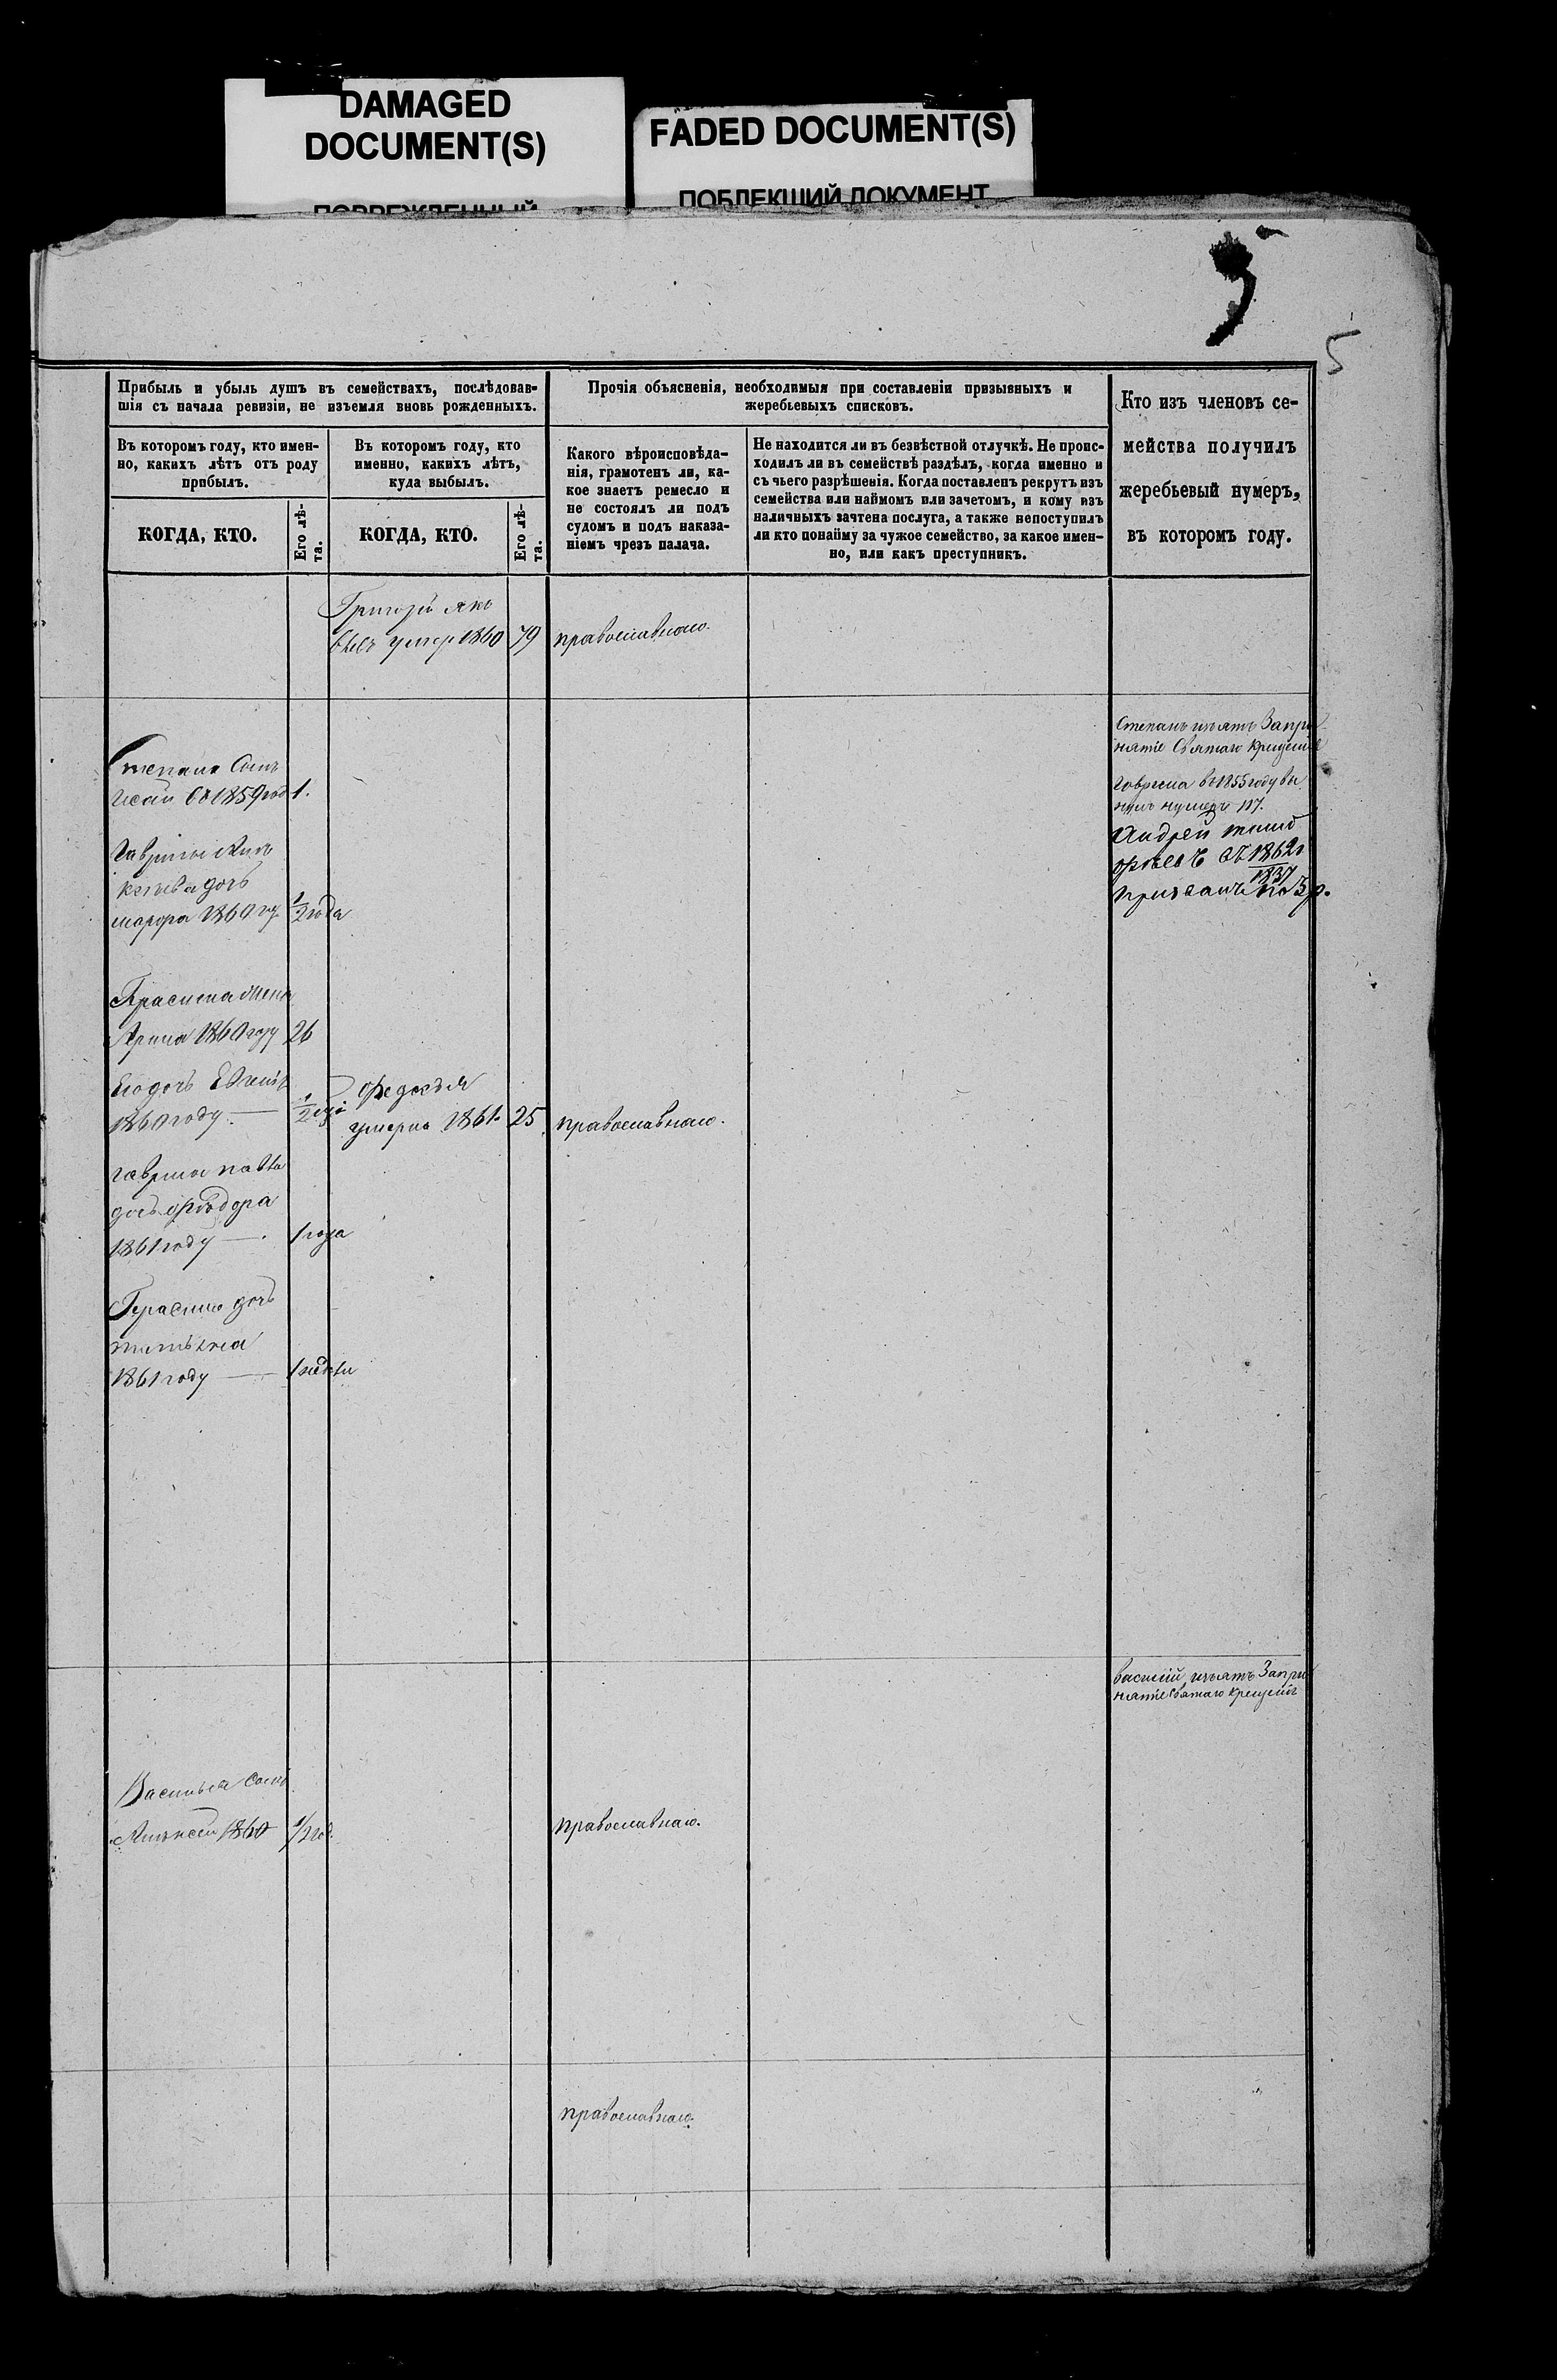 DAMAGED
DOCUMENT(S)
FADED DOCUMENT(S)
ПОВРЕЖДЕННЫЙ
ПОБЛЕКШИЙ ДОКУМЕНТ
5
Прибыль и убыль душъ въ семействахъ, послѣдовав-
шія съ начала ревизіи, не изъемля вновь рожденныхъ.
Въ которомъ году, кто имен-
но, какихъ лѣтъ отъ роду
прибылъ.
Въ которомъ году, кто
именно, какихъ лѣтъ,
куда выбылъ.
КОГДА, КТО.
Его лѣ-
та.
КОГДА, КТО.
Его лѣ-
та.
Прочія объясненія, необходимыя при составленіи призывныхъ и
жеребьевыхъ списковъ.
Какого вѣроисповѣда-
нія, грамотенъ ли, ка-
кое знаетъ ремесло и
не состоялъ ли подъ
судомъ и подъ наказа-
ніемъ чрезъ палача.
Не находится ли въ безвѣстной отлучкѣ. Не проис-
ходилъ ли въ семействѣ раздѣлъ, когда именно и
съ чьего разрѣшенія. Когда поставленъ рекрутъ изъ
семейства или наймомъ или зачетомъ, и кому изъ
наличныхъ зачтена послуга, а также непоступилъ
ли кто понайму за чужое семейство, за какое имен-
но, или какъ преступникъ.
Кто изъ членовъ се-
мейства получилъ
жеребьевый нумеръ,
въ которомъ году.
Григорій Яко
влевъ умер 1860 79 православнаго.
Степанъ изъятъ Запри
нятіе Святаго крещенія
Степана Сынъ
Исай въ 1859 год 1.
Гаврила в 1855 году вы
нулъ нумеръ 117.
Андрей
въ 1862
1837
Гаврилы
дочь
марфа 1860 1/2 года
Герасима Жена
Арина 1860 году 26
Его дочь
1860 году 1/2
умерла 1861. 25 православнаго.
гаврила
дочь федора
1861 году 1 года
Герасима дочь
татьяна
1861 году 1 недели
василій изъятъ Запри
нятіе Святаго крещенія
Василья Сынъ
Алексей 1860 1/2 год. православнаго.
православнаго.